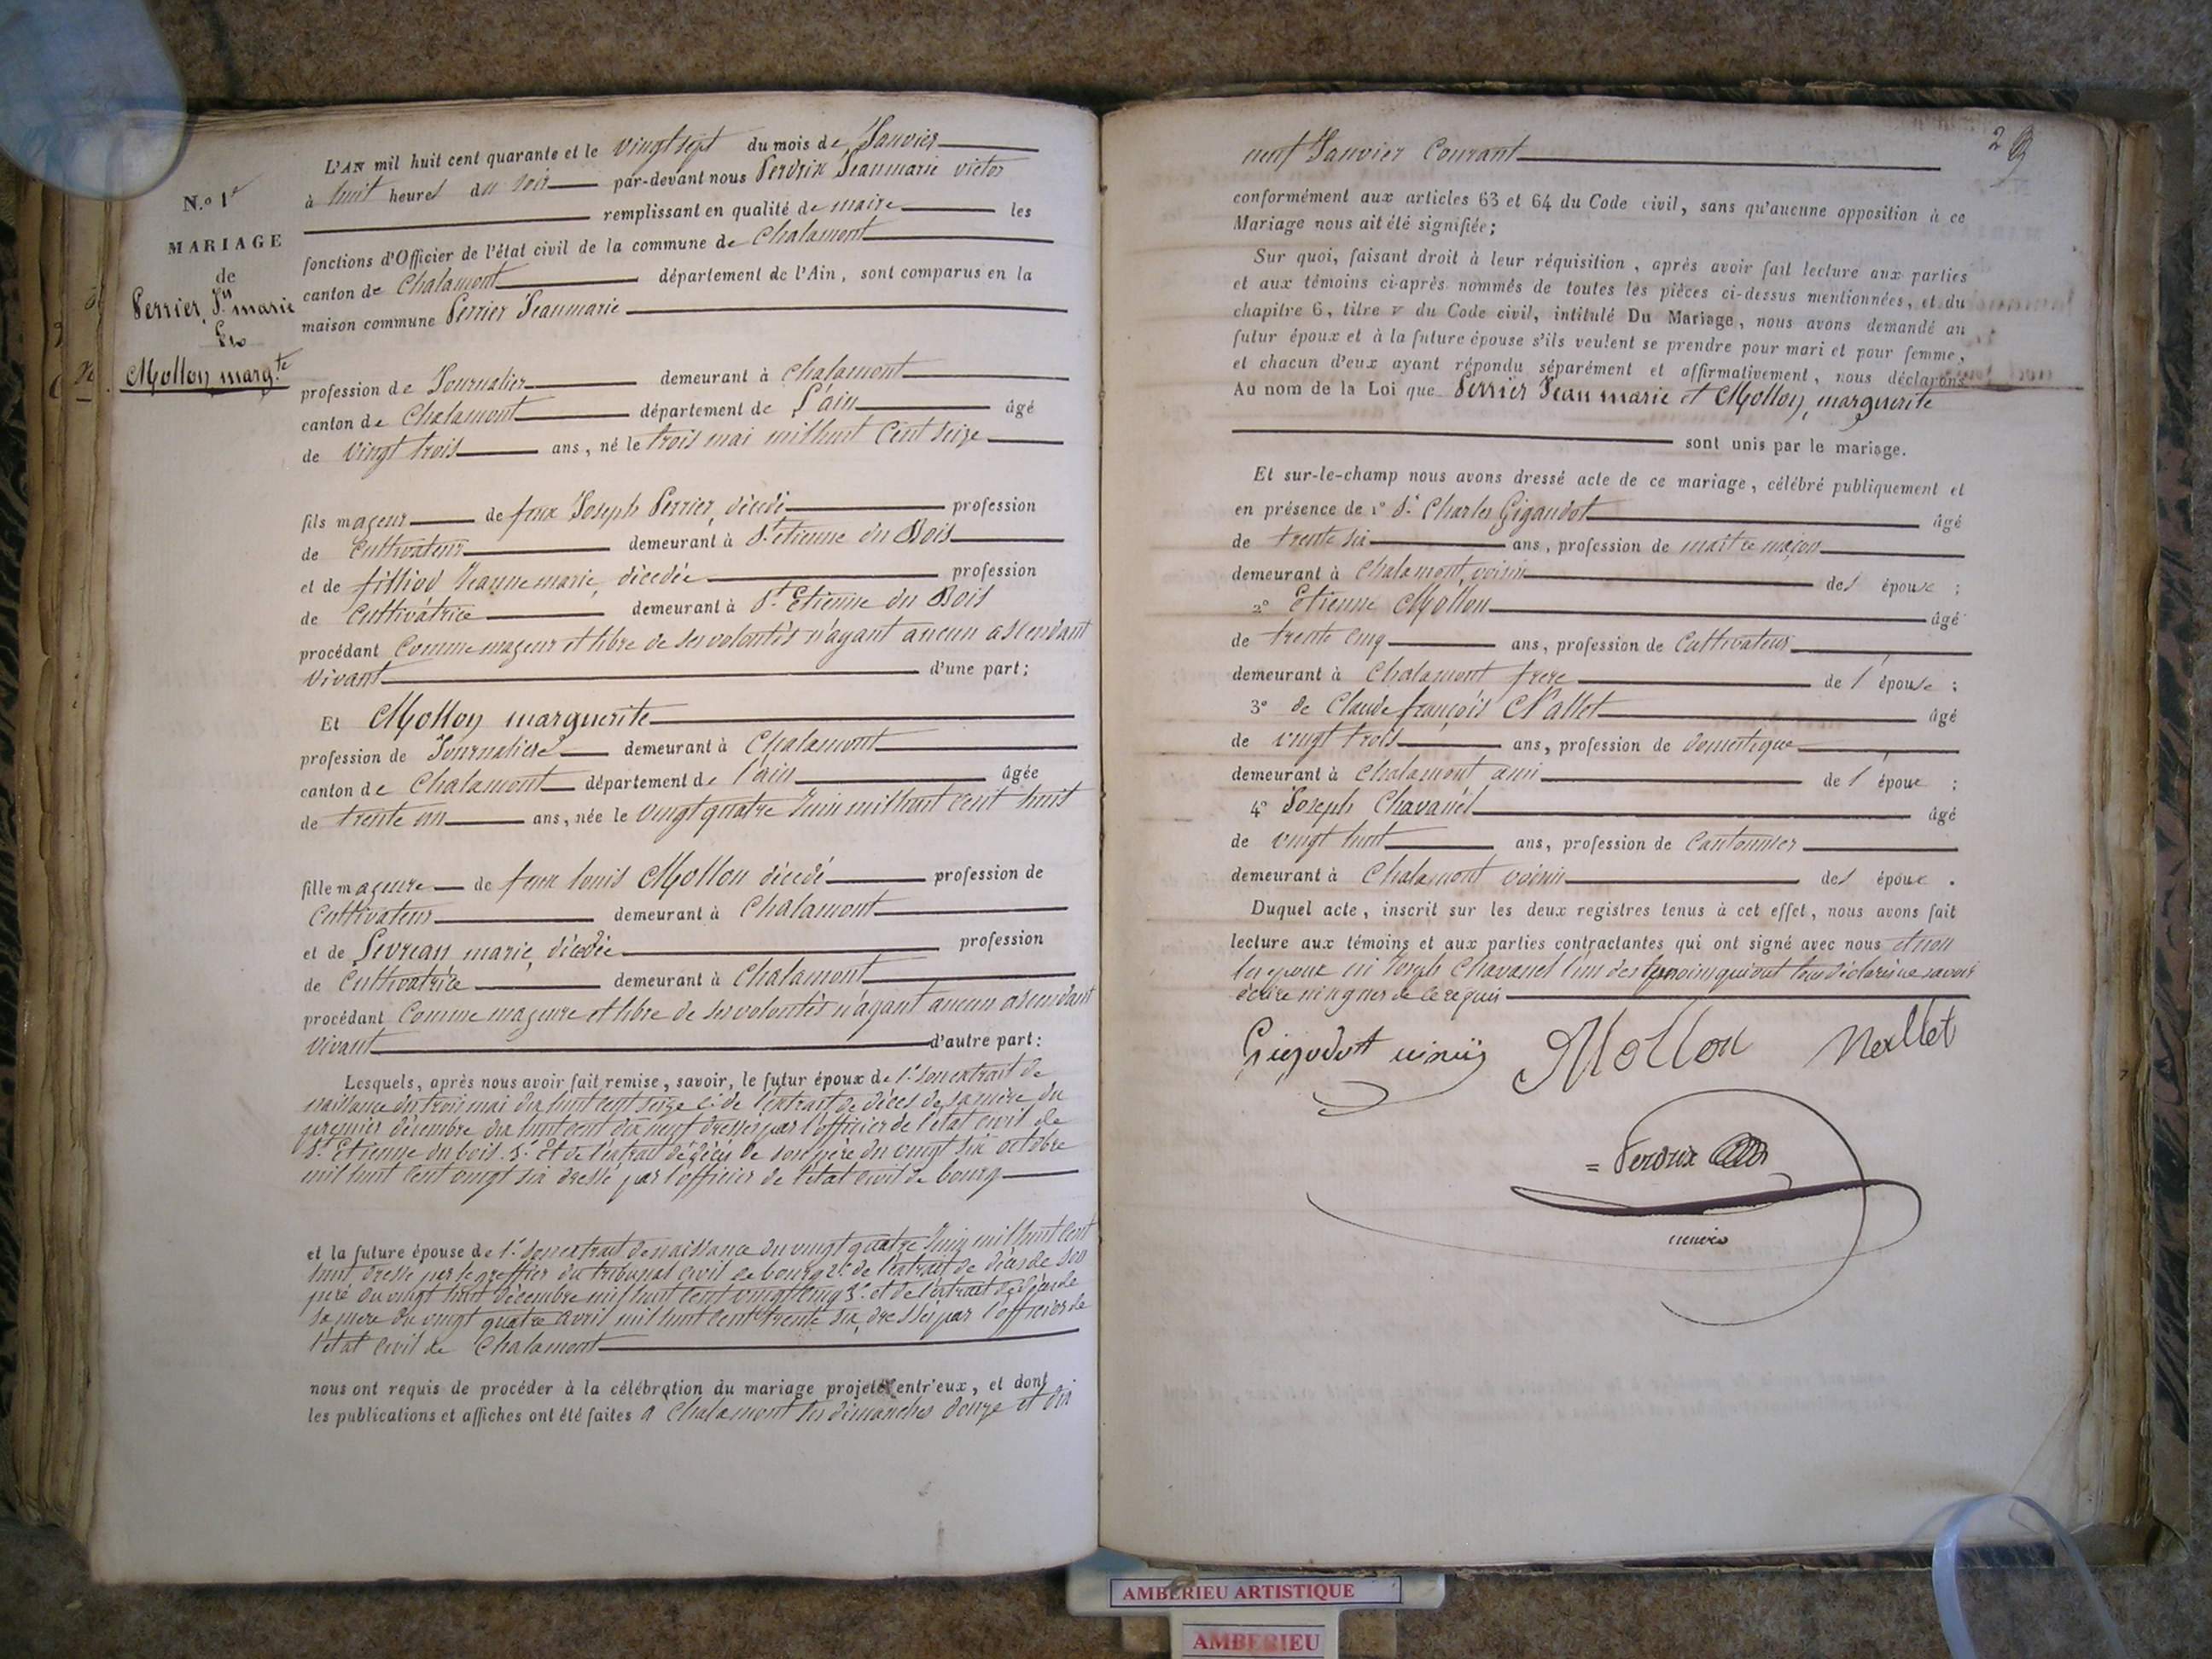 N.º 1er
MARIAGE
de
Perrier, Jn marie
&
Mollon margte
L'AN mil huit cent quarante et le vingt sept du mois de Janvier
à huit heures du soir par-devant nous Perdrix Jeanmarie victor
remplissant en qualité de maire les
fonctions d'Officier de l'état civil de la commune de Chalamont
canton de Chalamont département de l'Ain, sont comparus en la
maison commune Perrier Jeanmarie
profession de Journalier demeurant à Chalamont
canton de Chalamont département de L'ain âgé
de vingt trois ans, né le trois mai mil huit cent seize
fils majeur de feux Joseph Perrier, décédé profession
de Cultivateur demeurant à St. etienne du Bois
et de filliod Jeanne marie, décédée profession
de Cultivatrice demeurant à St. Etienne du Bois
procédant Comme majeur et libre de ses volontés n'ayant aucun ascendant
vivant d'une part;
Et Mollon marguerite
profession de Journalière demeurant à Chalamont
canton de Chalamont département de l'ain âgée
de trente un ans, née le vingt quatre Juin mil huit cent huit
fille majeure de feux Louis Mollon décédé profession de
Cultivateur demeurant à Chalamont
et de Levrean marie, décédée profession
de Cultivatrice demeurant à Chalamont
procédant Comme majeure et libre de ses volontés n'ayant aucun ascendant
vivant d'autre part:
Lesquels, après nous avoir fait remise, savoir, le futur époux de 1º Son extrait de
naissance du trois mai dix huit cent seize 2º de l'extrait de décès de sa mère du
premier décembre dix huit cent dix neuf dressés par l'officier de l'état civil de
St. Etienne du bois. 3º Et de l'extrait de décès de son père du vingt six octobre
mil huit cent vingt six dressé par l'officier de l'état civil de bourg
et la future épouse de 1º Son extrait de naissance du vingt quatre Juin mil huit cent
huit, dressé par le greffier du tribunal civil de bourg 2º de l'extrait de décès de son
père du vingt huit décembre mil huit cent vingt cinq 3º et de l'extrait de décès de
sa mère du vingt quatre avril mil huit cent trente six, dressés par l'officier de
l'état civil de Chalamont
nous ont requis de procéder à la célébration du mariage projeté entr'eux, et dont
les publications et affiches ont été faites à Chalamont les dimanches douze et dix
2
neuf Janvier Courant
conformément aux articles 63 et 64 du Code civil, sans qu'aucune opposition à ce
Mariage nous ait été signifiée;
Sur quoi, faisant droit à leur réquisition, après avoir fait lecture aux parties
et aux témoins ci-après nommés de toutes les pièces ci-dessus mentionnées, et du
chapitre 6, titre v du Code civil, intitulé Du Mariage, nous avons demandé au
futur époux et à la future épouse s'ils veulent se prendre pour mari et pour femme,
et chacun d'eux ayant répondu séparément et affirmativement, nous déclarons
Au nom de la Loi que Perrier Jean marie et Mollon, marguerite
sont unis par le mariage.
Et sur-le-champ nous avons dressé acte de ce mariage, célébré publiquement et
en présence de 1º Sr. Charles Gigaudot âgé
de trente six ans, profession de maitre maçon
demeurant à Chalamont, voisin des époux;
2º Etienne Mollon âgé
de trente cinq ans, profession de Cultivateur
demeurant à Chalamont frère de l'épouse;
3º de Claude françois Nallet âgé
de vingt trois ans, profession de domestique
demeurant à Chalamont ami de l'époux;
4º Joseph Chavanel âgé
de vingt huit ans, profession de Cantonnier
demeurant à Chalamont voisin des époux.
Duquel acte, inscrit sur les deux registres tenus à cet effet, nous avons fait
lecture aux témoins et aux parties contractantes qui ont signé avec nous et non
les époux ni Joseph Chavanel l'un des temoins qui ont tous déclaré ne savoir
écrire ni signer de ce requis
Mollon
Nallet
= Perdrix
AMBERIEU ARTISTIQUE
AMBERIEU